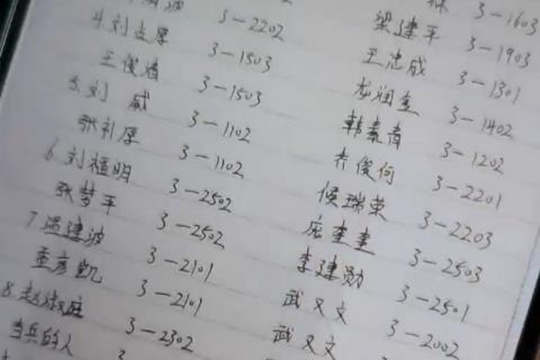 3-2202
4.刘占厚 3-1503
王俊清 3-1503
5.刘威 3-1102
张礼厚 3-1102
6.刘福明 3-2502
张梦平 3-2502
7.温建波 3-2101
董彦凯 3-2101
8. 3-2302
当兵的人 3
3-1603
梁建平 3-1903
王忠成 3-1301
龙润圭 3-1402
韩素青 3-1202
俊何 3-2201
侯瑞荣 3-2203
庞奎圭 3-2503
李建勋 3-2501
武又文 3-2002
武又文